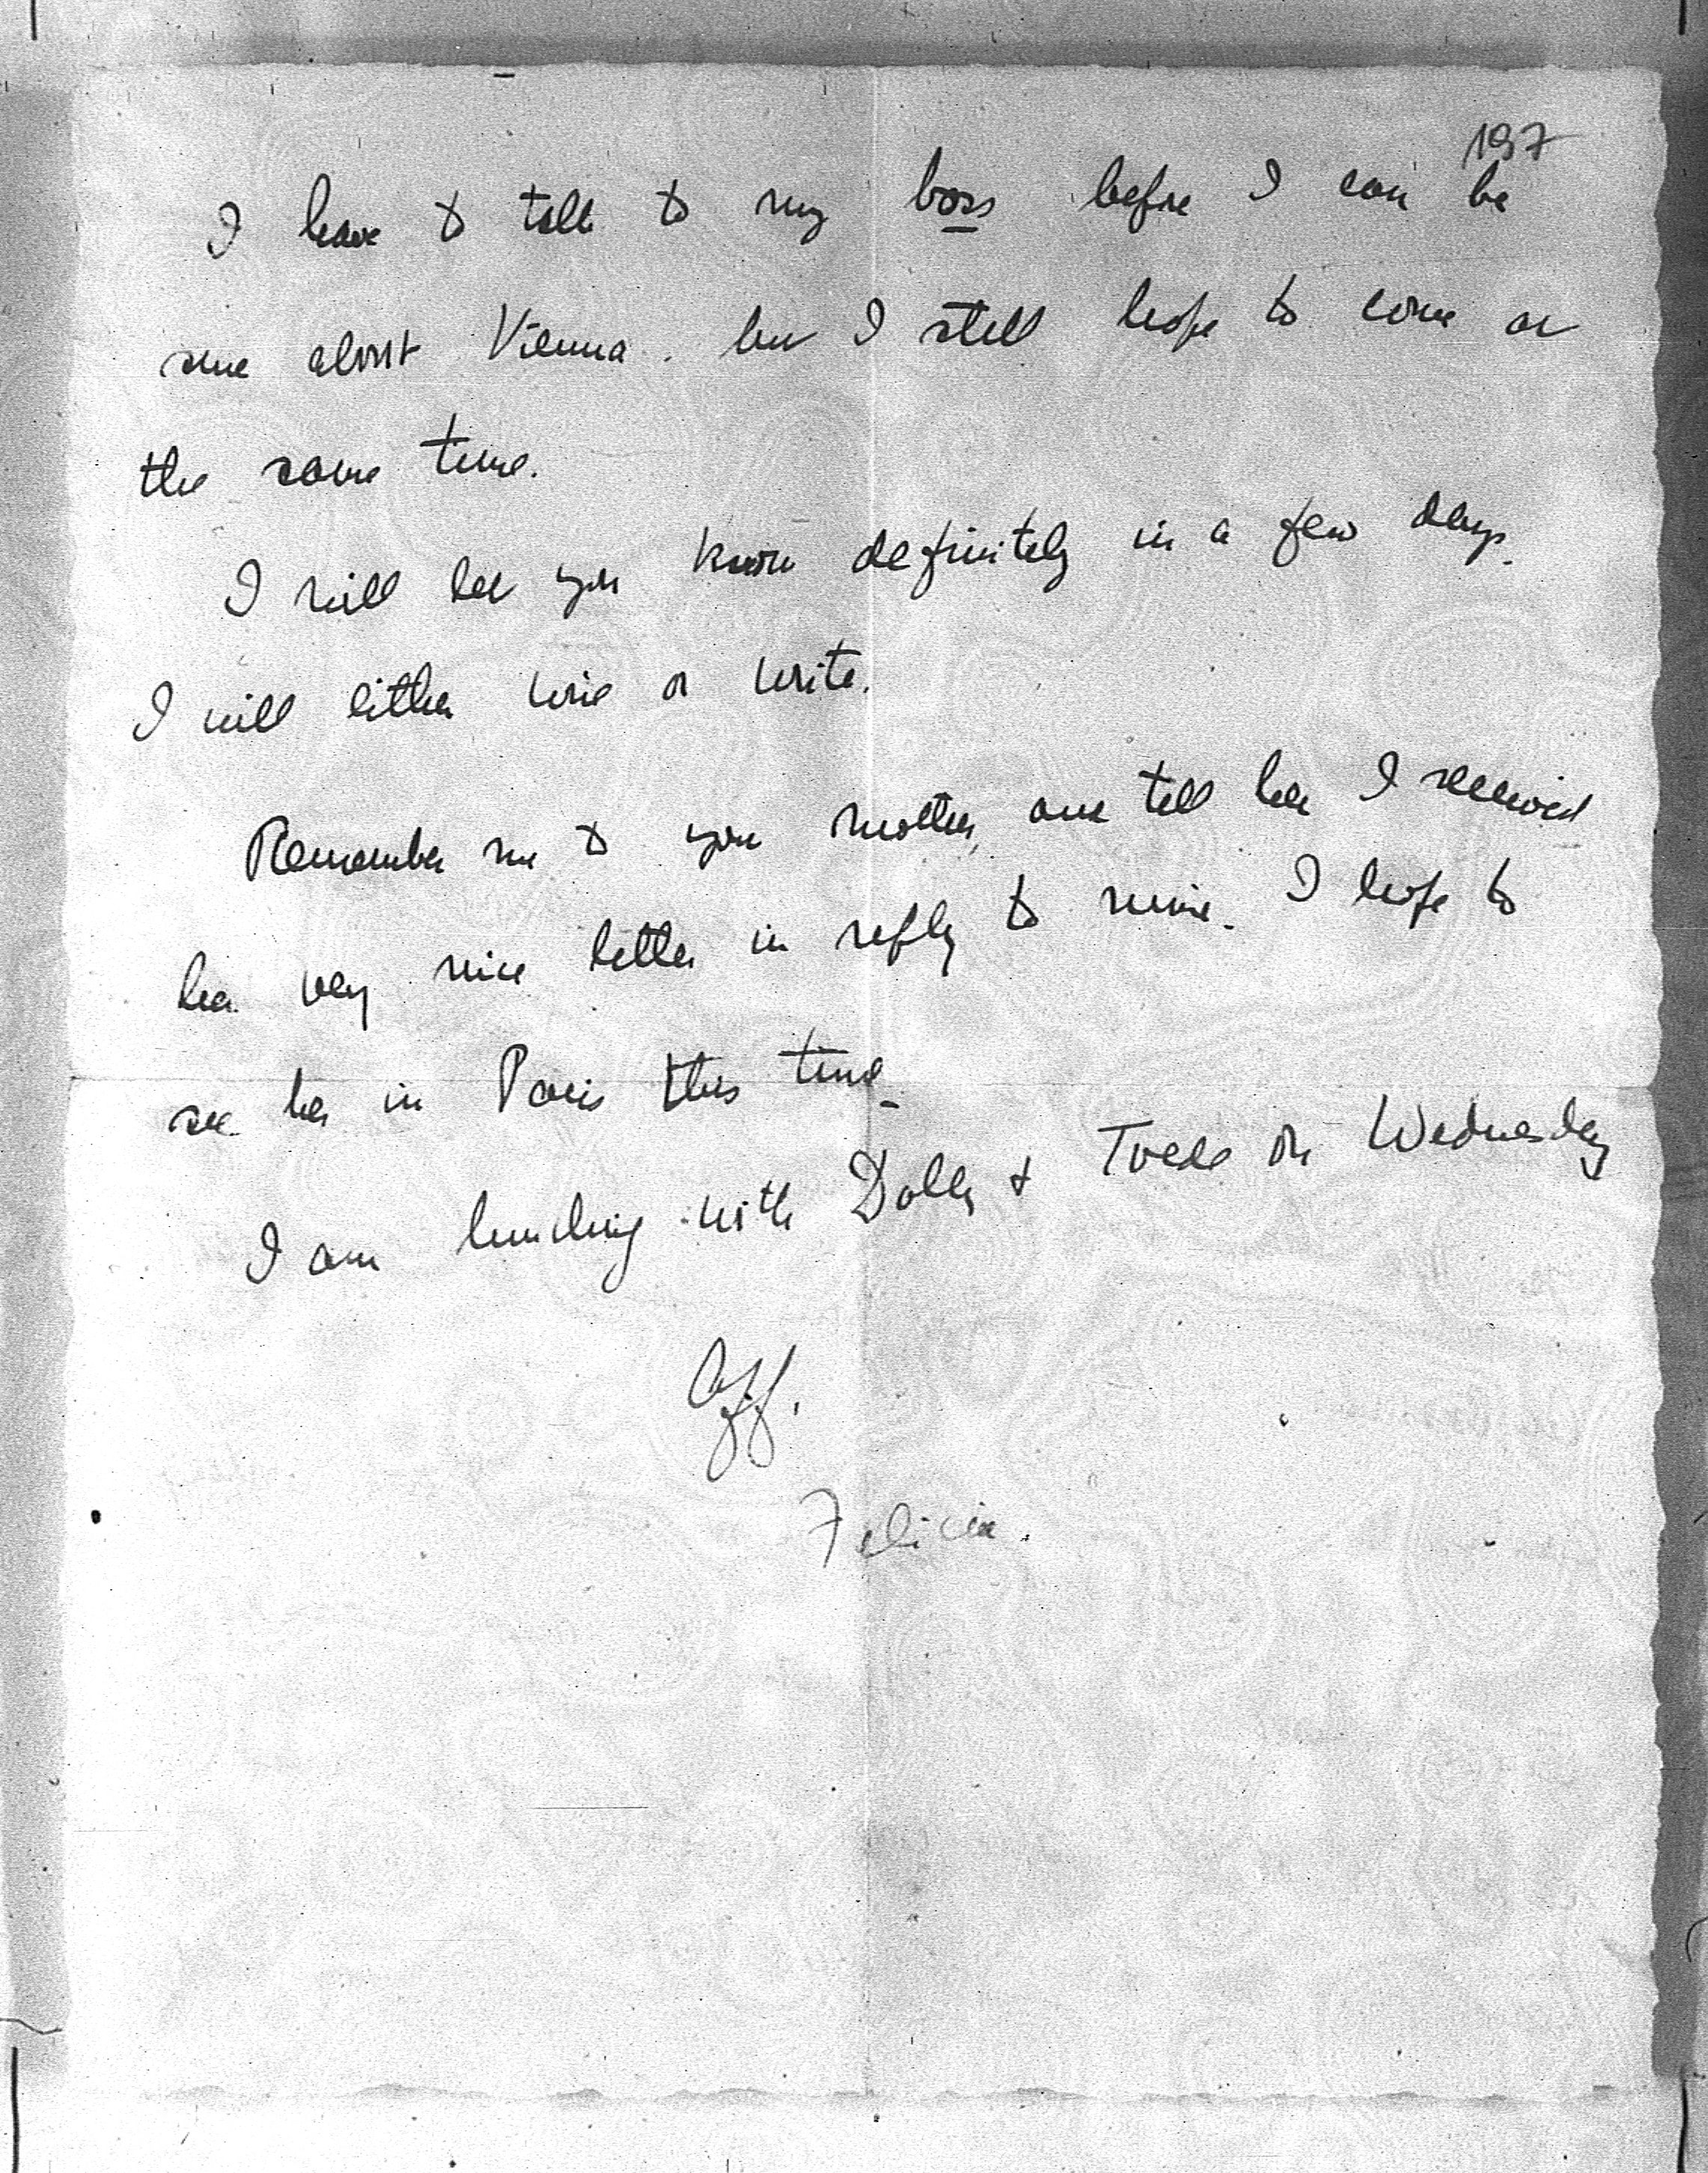 197
I have to talk to my boss before I can be
sure about Vienna. but I still hope to come at
the same time.
I will let you know definitely in a few days.
I will either wire or write.
Remember me to your mother, and tell her I received
her very nice letter in reply to mine. I hope to
see her in Paris this time.
I am lunching with Dolly & on Wednesday
Aff.
Felicia.